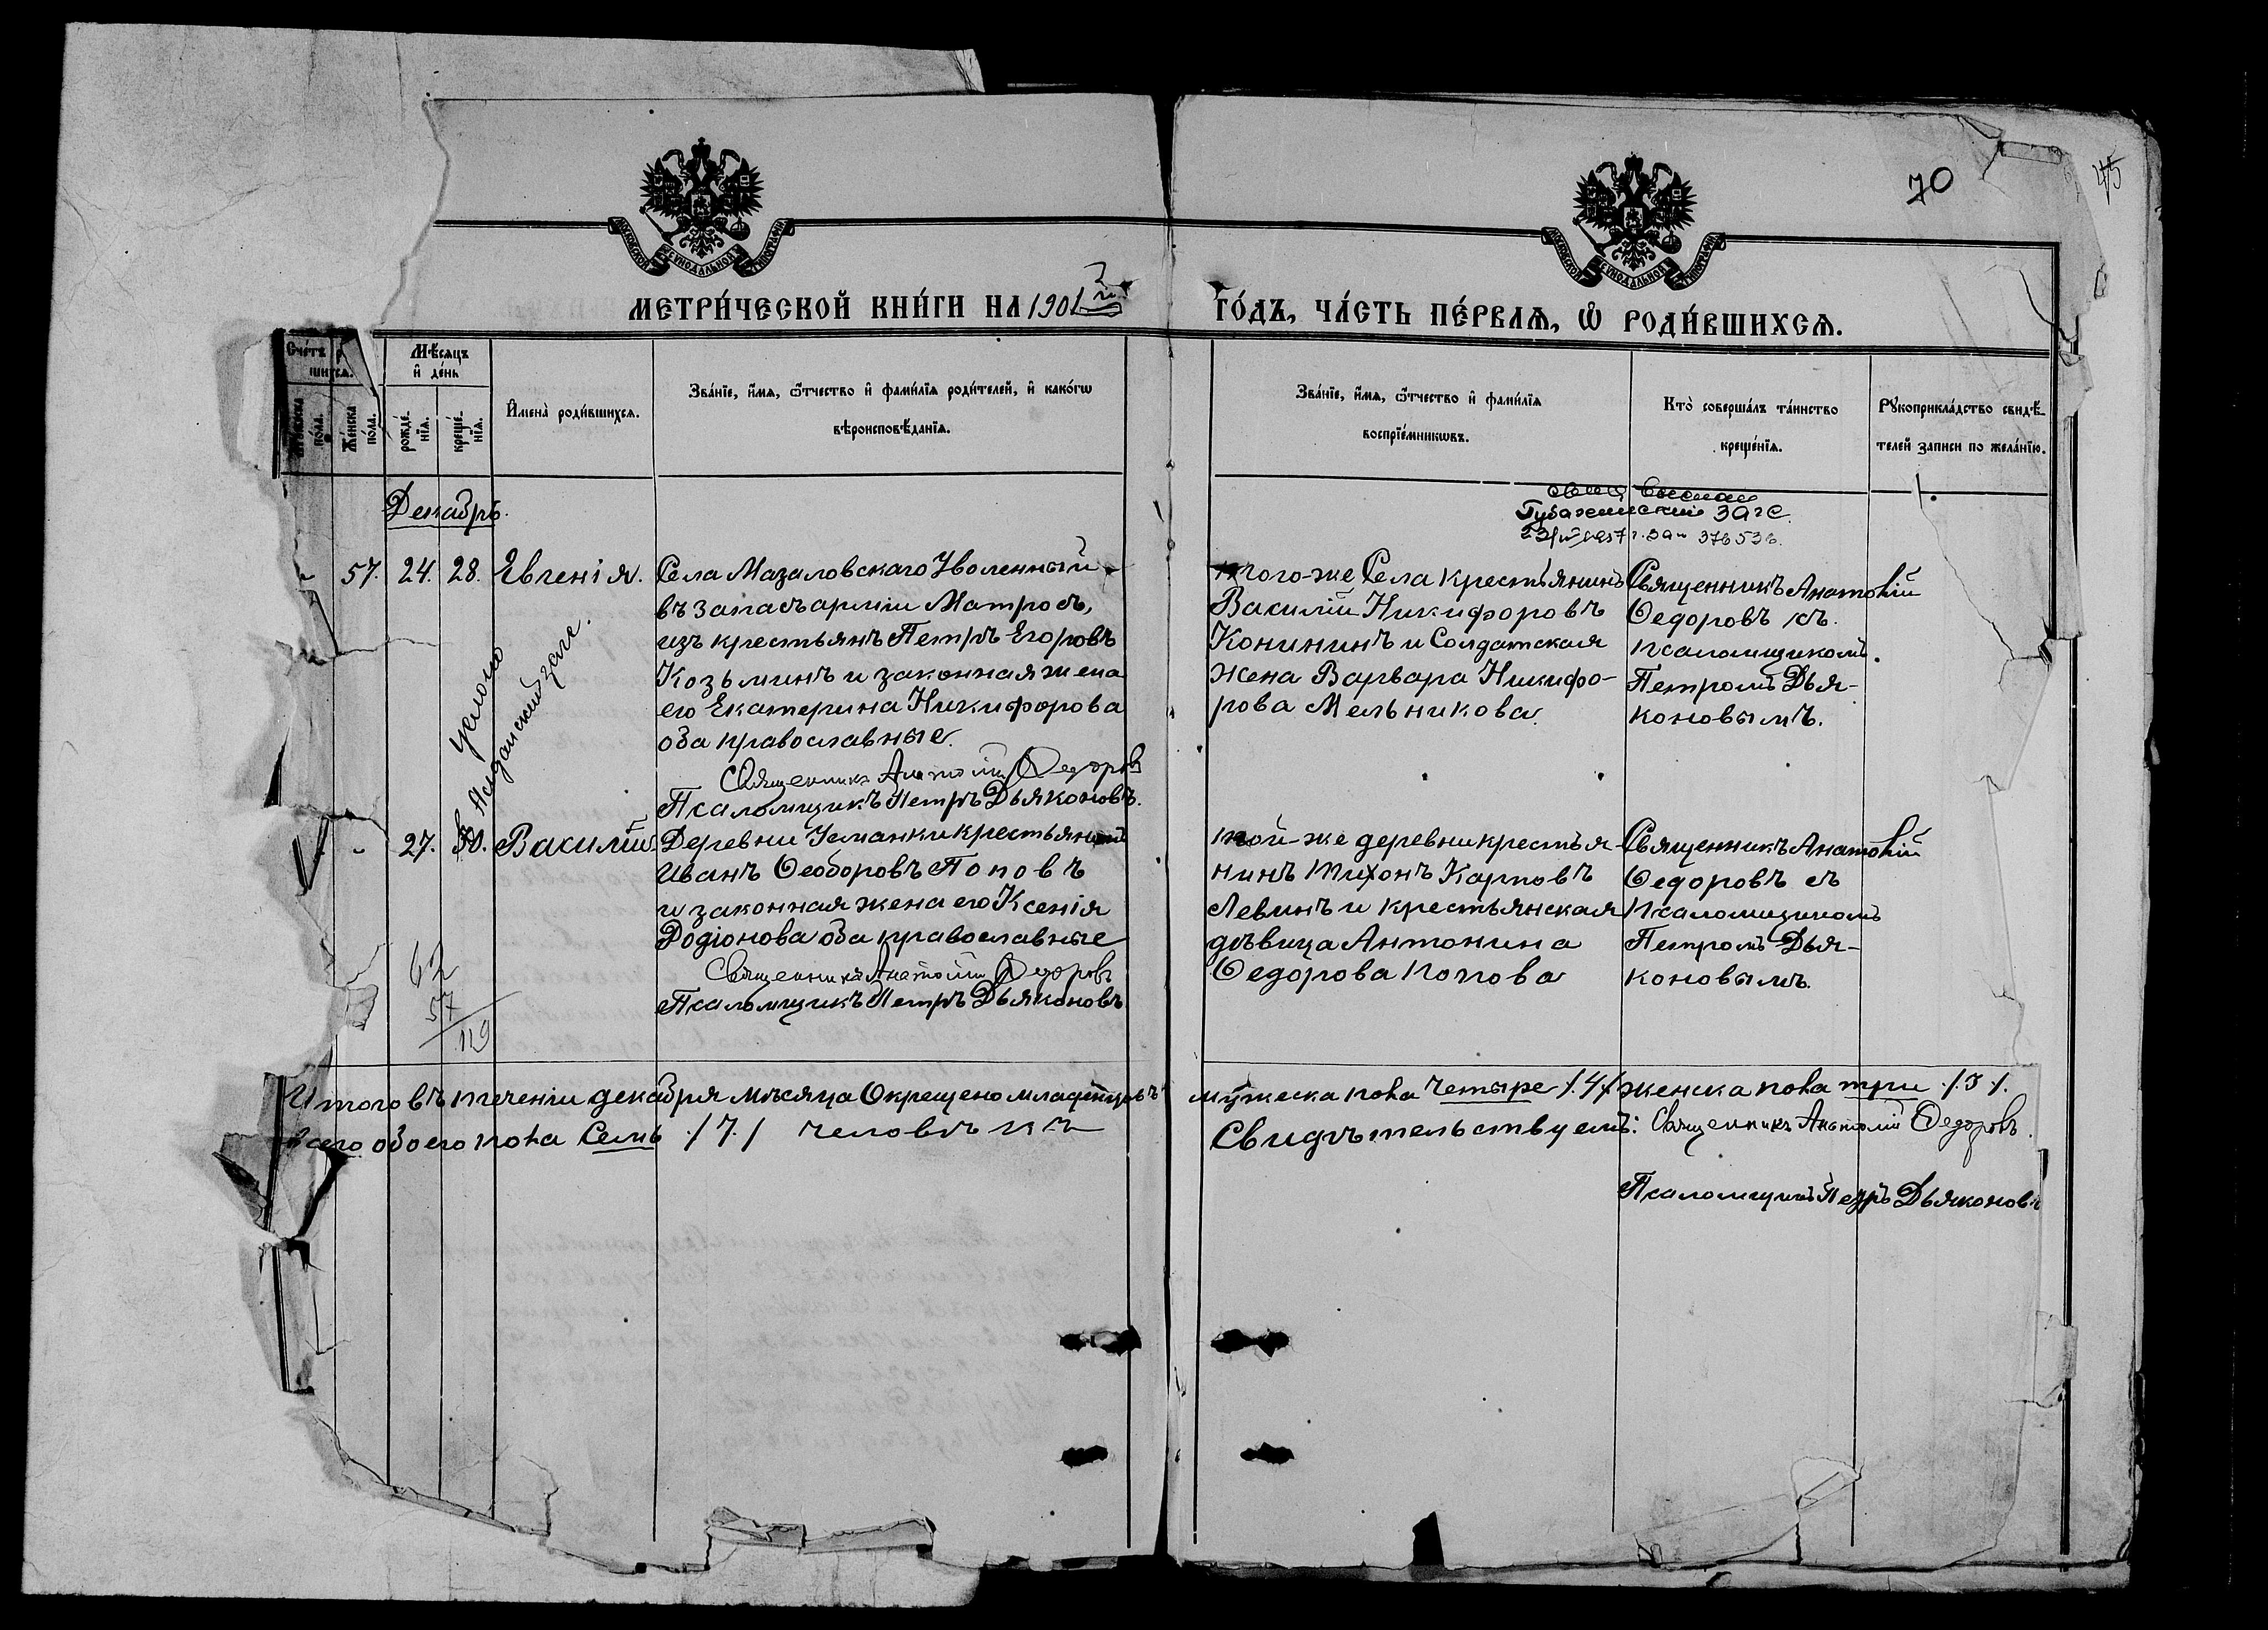 70
45
МОСКОВСКОЙ СѴНОДАЛЬНОЙ ТИПОГРАФІИ
МОСКОВСКОЙ СѴНОДАЛЬНОЙ ТИПОГРАФІИ
МЕТРИ́ЧЕСКОЙ КНИ́ГИ НА 1901 й
ГО́ДЪ, ЧА́СТЬ ПЕ́РВАѦ, Ѡ҆ РОДИ́ВШИХСѦ.
Сче́тъ
шихсѧ.
Мѣ́сѧцъ
и҆ де́нь
Мꙋ́жеска
по́ла.
Же́нска
по́ла.
рожде́-
нїѧ.
креще́-
нїѧ.
И҆мена̀ роди́вшихсѧ.
Зва́нїе, и҆́мѧ, ѻ҆́тчество и҆ фами́лїѧ роди́телей, и҆ како́гѡ
вѣроисповѣ́данїѧ.
Зва́нїе, и҆́мѧ, ѻ҆́тчество и҆ фами́лїѧ
воспрїе́мникѡвъ.
Кто̀ соверша́лъ та́инство
креще́нїѧ.
Рꙋкоприкла́дство свидѣ́-
телей записи по жела́нїю.
Декабрь.
Губахинский загс
57. 24. 28. Евгенія.
Села Мазаловскаго Уволенный
въ запасъ арміи Матросъ,
изъ крестьянъ Петръ Егоровъ
Козьминъ и законная жена
его Екатерина Никифорова
оба православные.
Священникъ Анатолій Федоровъ
Псаломщикъ Петръ Дьяконовъ.
того-же Села крестьянинъ
Василій Никифоровъ
Конининъ и Солдатская
Жена Варвара Никифо-
рова Мельникова.
Священникъ Анатолій
Ѳедоровъ съ
псаломщикомъ
Петромъ Дья-
коновымъ.
загс.
- 27. 30. Василій.
Деревни Усманки крестьянинъ
Иванъ Ѳеодоровъ Поповъ
и законная жена его Ксенія
Родіонова оба православные
Священникъ Анатолій Федоровъ
Псаломщикъ Петръ Дьяконовъ
той-же деревни крестья-
нинъ Тихонъ Карповъ
Левинъ и крестьянская
дѣвица Антонина
Ѳедорова Попова
Священникъ Анатолій
Ѳедоровъ съ
Псаломщикомъ
Петромъ Дья-
коновымъ.
62
57
119
Итого въ теченіи декабря мѣсяца Окрещено младенцовъ
мужеска пола Четыре /.4/ женска пола три /.3/.
Всего обоего пола Семь /7./ человѣкъ
Свидѣтельствуемъ: Священникъ Анатолій Федоровъ.
Псаломщикъ Петръ Дьяконовъ